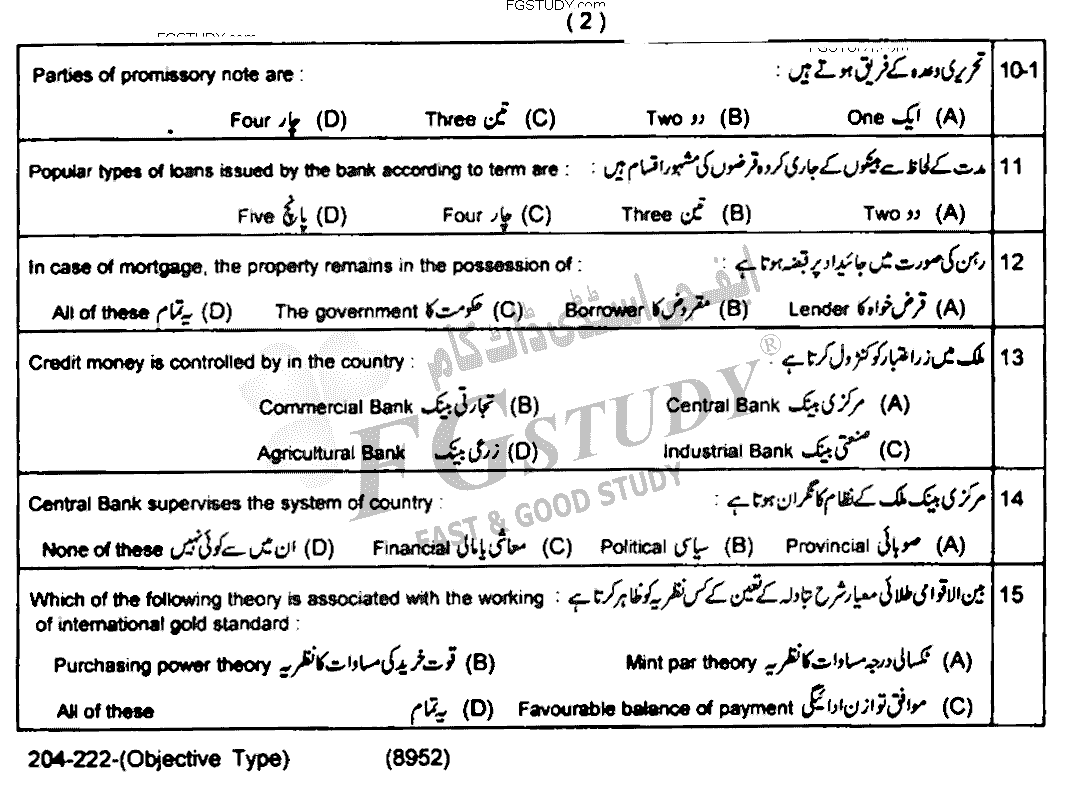 FGSTUDY.com
(2)
Parties of promissory note are : تحریری وعدہ کے فریق ہوتے ہیں : 10-1
(A) ایک One (B) دو Two (C) تین Three (D) چار Four
Popular types of loans issued by the bank according to term are : مدت کے لحاظ سے بینکوں کے جاری کردہ قرضوں کی مشہور اقسام ہیں : 11
(A) دو Two (B) تین Three (C) چار Four (D) پانچ Five
In case of mortgage, the property remains in the possession of : رہن کی صورت میں جائیداد پر قبضہ ہوتا ہے : 12
(A) قرض خواہ کا Lender (B) مقروض کا Borrower (C) حکومت کا The government (D) یہ تمام All of these
Credit money is controlled by in the country : ملک میں زر اعتبار کو کنٹرول کرتا ہے : 13
(A) مرکزی بینک Central Bank (B) تجارتی بینک Commercial Bank
(C) صنعتی بینک Industrial Bank (D) زرعی بینک Agricultural Bank
Central Bank supervises the system of country : مرکزی بینک ملک کے نظام کا نگران ہوتا ہے : 14
(A) صوبائی Provincial (B) سیاسی Political (C) معاشی یا مالی Financial (D) ان میں سے کوئی نہیں None of these
Which of the following theory is associated with the working : بین الاقوامی طلائی معیار شرح تبادلہ کے تعین کے کس نظریہ کو ظاہر کرتا ہے 15
of international gold standard :
(A) ٹکسالی درجہ مساوات کا نظریہ Mint par theory (B) قوت خرید کی مساوات کا نظریہ Purchasing power theory
(C) موافق توازن ادائیگی Favourable balance of payment (D) یہ تمام All of these
204-222-(Objective Type) (8952)
انف جی اسٹڈی ڈاٹ کام
FGSTUDY®
FAST & GOOD STUDY